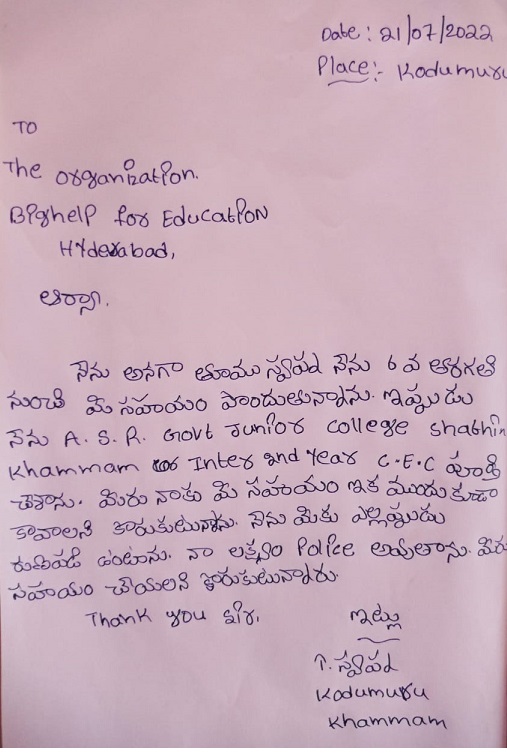 Date: 21/07/2022
Place:- Kodumuru
TO
The organization.
Bighelp for Education
Hyderabad,
ఆర్యా.
నేను అనగా తూము స్వప్న నేను 6 వ తరగతి
నుంచి మీ సహాయం పొందుతున్నాను. ఇప్పుడు
నేను A. S. R. Govt Junior college
Khammam Inter 2nd Year C.E.C పూర్తి
చేశాను. మీరు నాకు మీ సహాయం ఇక ముందు కుడా
కావాలని కొరుకుటునాను. నేను మీకు ఎల్లప్పుడు
రుణపడి ఉంటాను. నా లక్ష్యం Police అవుతాను. మీరు
సహాయం చేయలని కొరుకుటున్నారు.
Thank you sir, ఇట్లు
T. స్వప్న
Kodumuru
Khammam